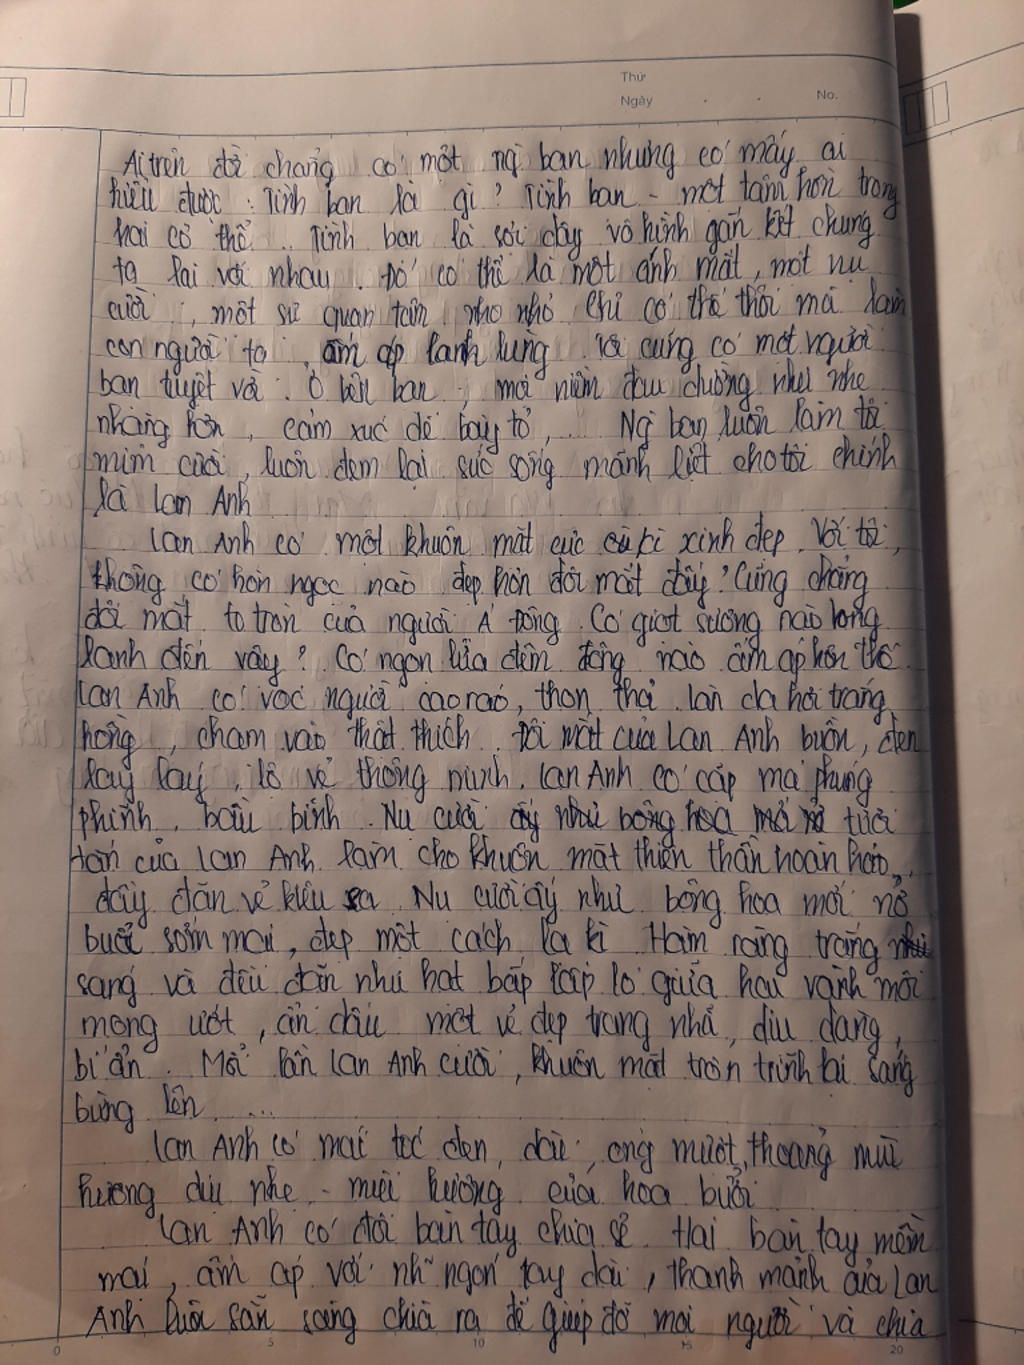 Thứ
Ngày . . No.
Ai trên đời chẳng có một ng bạn nhưng có mấy ai
hiểu được: Tình bạn là gì? Tình bạn - một tâm hồn trong
hai cơ thể. Tình bạn là sợi dây vô hình gắn kết chúng
ta lại với nhau. Đó có thể là một ánh mắt, một nụ
cười, một sự quan tâm nho nhỏ. Chỉ có thế thôi mà làm
con người ta ấm áp lạnh lùng. Tôi cũng có một người
bạn tuyệt vời. Ở bên bạn, mọi niềm đau dường như nhẹ
nhàng hơn, cảm xúc dễ bày tỏ,... Ng bạn luôn làm tôi
mỉm cười, luôn đem lại sức sống mãnh liệt cho tôi chính
là Lan Anh
Lan Anh có một khuôn mặt cực kì xinh đẹp. Với tôi,
không có hòn ngọc nào đẹp hơn đôi mắt đấy! Cũng chẳng
đôi mắt to tròn của người Á Đông. Có giọt sương nào long
lanh đến vậy? Có ngọn lửa đêm đông nào ấm áp hơn thế.
Lan Anh có vóc người cao ráo, thon thả. Làn da hơi trắng
hồng, chạm vào thật thích. Đôi mắt của Lan Anh buồn, đen
lay láy, lộ vẻ thông minh. Lan Anh có cặp má phúng
phính, bầu bĩnh. Nụ cười ấy như bông hoa mới nở tươi
tắn của Lan Anh làm cho khuôn mặt thiên thần hoàn hảo,
đầy đặn vẻ kiêu sa. Nụ cười ấy như bông hoa mới nở
buổi sớm mai, đẹp một cách lạ kì. Hàm răng trắng
sáng và đều đặn như hạt bắp lấp ló giữa hai vành môi
mọng ướt, ẩn dấu một vẻ đẹp trang nhã, dịu dàng,
bí ẩn. Mỗi lần Lan Anh cười, khuôn mặt tròn trĩnh lại sáng
bừng lên....
Lan Anh có mái tóc đen, dài, óng mượt, thoảng mùi
hương dịu nhẹ - mùi hương của hoa bưởi
Lan Anh có đôi bàn tay chia sẻ. Hai bàn tay mềm
mại, ấm áp với nh~ ngón tay dài, thanh mảnh của Lan
Anh luôn sẵn sàng chìa ra để giúp đỡ mọi người và chia
0 5 10 15 20